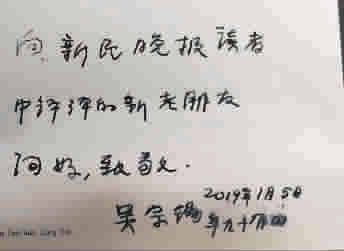 向新民晚报读者
中评弹的新老朋友
问好，致敬。
吴宗锡 2019年1月5日
年九十四